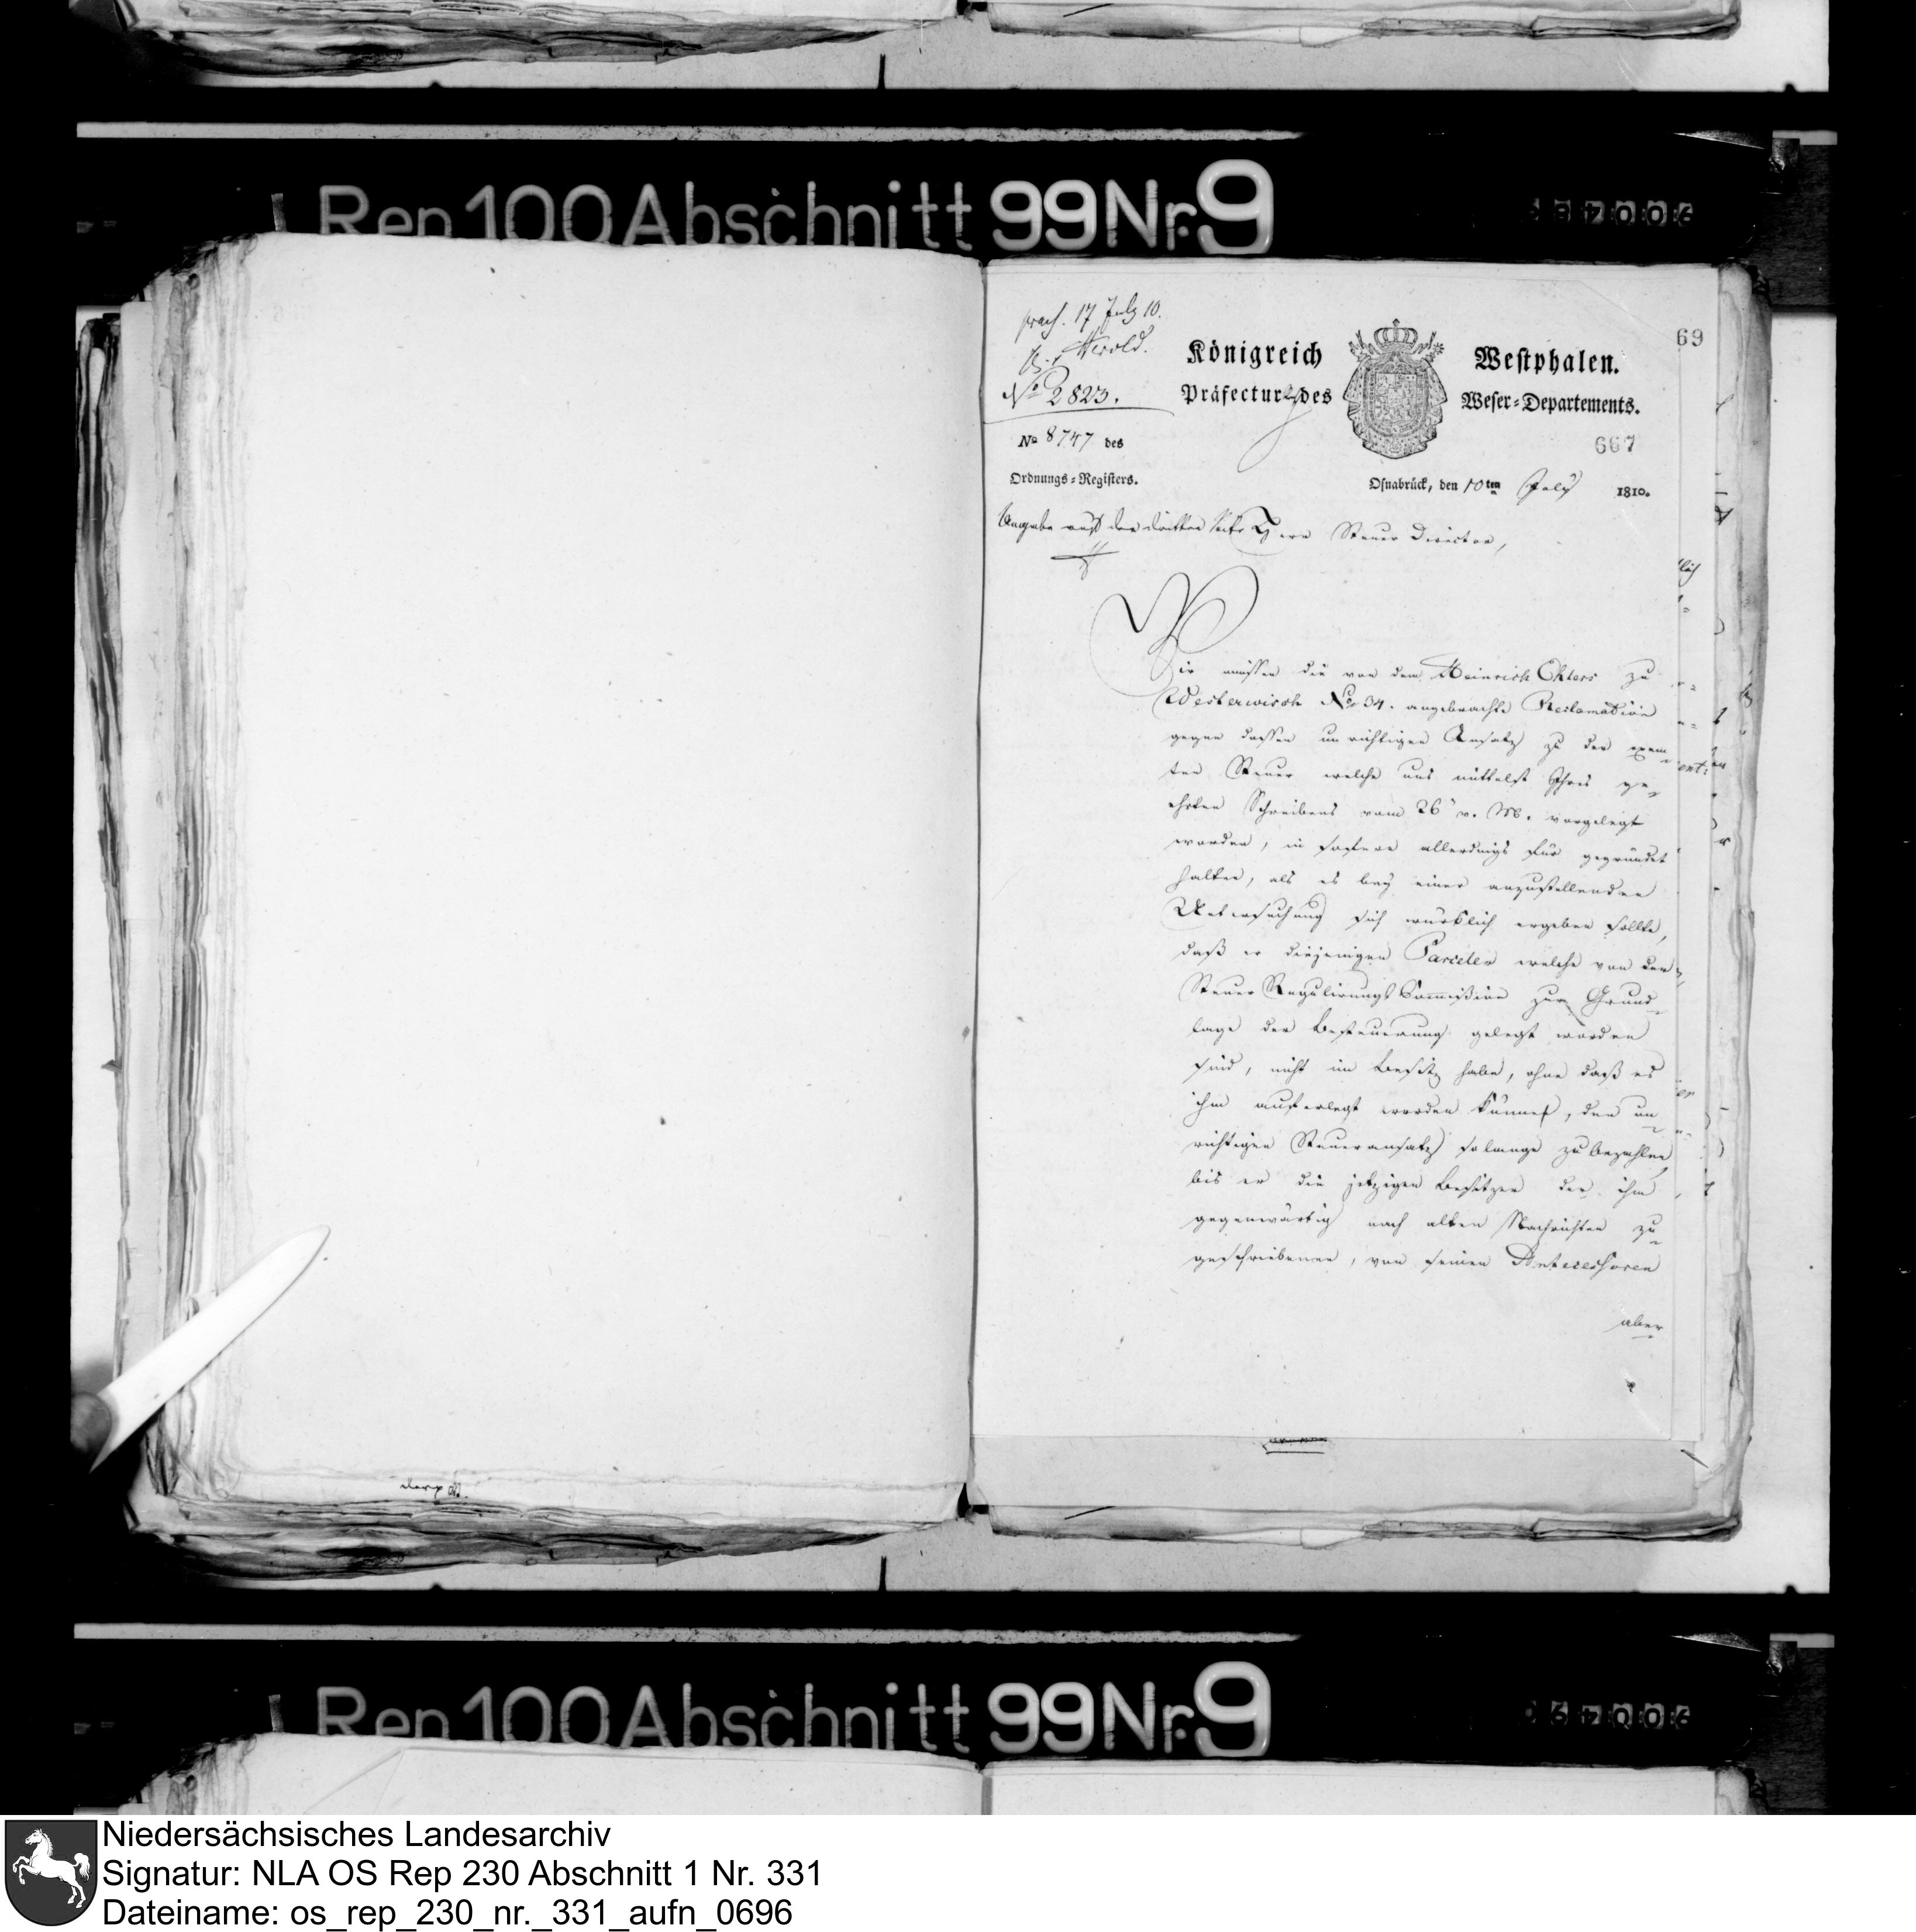 Rep 100 Abschnitt 99 Nr. 9
69
praes. 17 July 10.
Herold.
No 2823.
Königreich Westphalen.
Präfectur des Weser-Departements.
667
No 8747 des
Ordnungs-Registers.
Osnabrück, den 10ten July 1810.
Angabe auf der dritten Seite
Herr Steuer Director,
Wir müssen die von dem Heinrich Ehlers zu
Westerwisch No 34. angebrachte Reclamation
gegen dessen unrichtigen Ansatz zu der exem
ten Steuer welche uns mittelst Ihres ge-
ehrten Schreibens vom 26 v. M. vorgelegt
worden, in sofern allerdings für gegründet
halten, als es bey einer anzustellenden
Untersuchung sich würklich ergeben sollte,
daß er diejenigen Parcelen welche von der
Steuer Regulirungs Commißion zur Grund-
lage der Besteuerung gelegt worden
sind, nicht im Besitz habe, ohne daß es
ihm auferlegt werden könne, den un-
richtigen Steueransatz solange zu bezahlen,
bis er die jetzigen Besitzer der ihm
gegenwärtig nach alten Nachrichten zu-
geschriebenen, von seinen Antecessoren
aber
Rep 100 Abschnitt 99 Nr. 9
Niedersächsisches Landesarchiv
Signatur: NLA OS Rep 230 Abschnitt 1 Nr. 331
Dateiname: os_rep_230_nr._331_aufn_0696